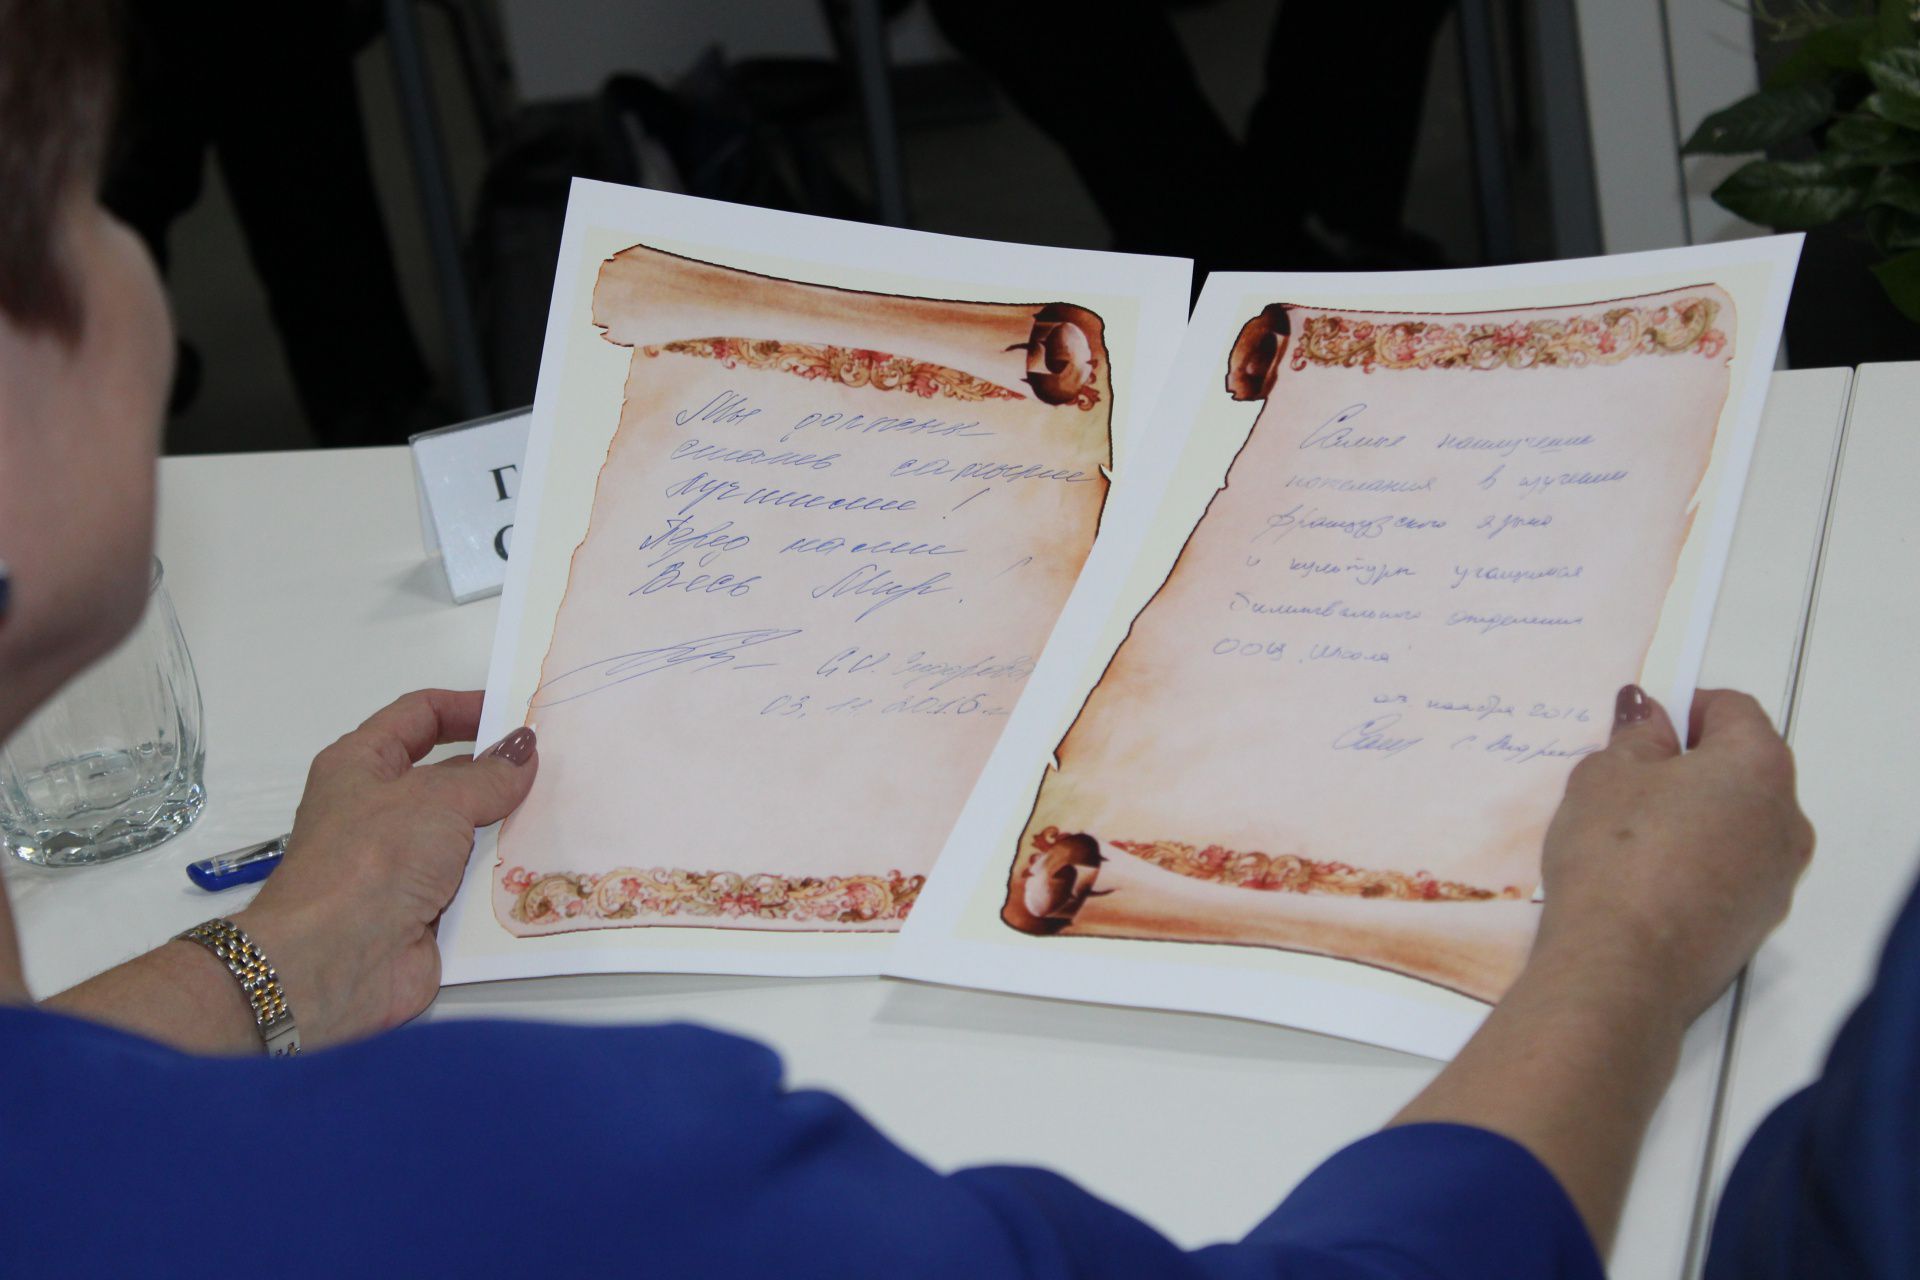 Г
С
Мы должны
стать самыми
лучшими!
Перед нами
Весь Мир!
С.И.
03.11.2016 г.
Самые наилучшие
пожелания в изучении
французского языка
и культуры учащимся
билингвального отделения
ООЦ "Школа"
03 ноября 2016
С. Андреев